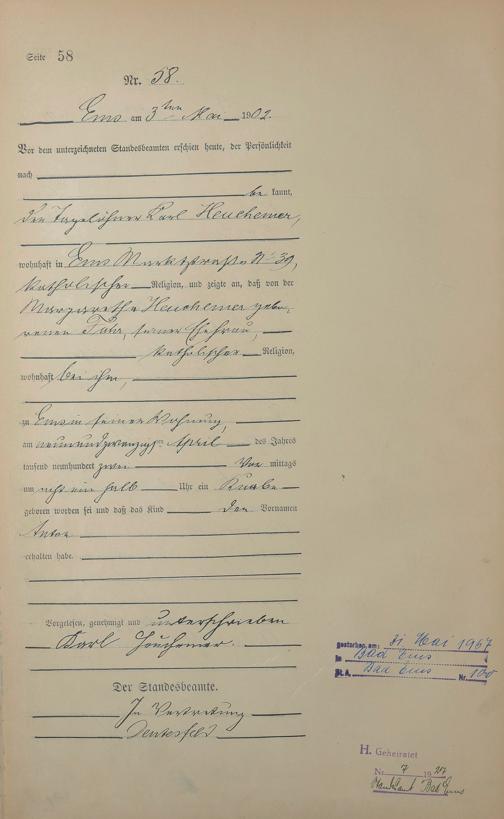 Seite 58
Nr. 58.
Ems am 3ten Mai 1902.
Vor dem unterzeichneten Standesbeamten erschien heute, der Persönlichkeit
nach
be kannt,
den Tagelöhner Karl Heuchemer,
wohnhaft in Ems Marktstraße No 39,
katholischer Religion, und zeigte an, daß von der
Margarethe Heuchemer gebo-
renen, seiner Ehefrau,
katholischer Religion,
wohnhaft bei ihm,
zu Ems in seiner Wohnung,
am neunundzwanzigsten April des Jahres
tausend neunhundert zwei Vor mittags
um acht ein halb Uhr ein Knabe
geboren worden sei und daß das Kind den Vornamen
Anton
erhalten habe.
Vorgelesen, genehmigt und unterschrieben
Karl Heuchemer.
Der Standesbeamte.
In Vertretung
gestorben am: 31 Mai 1967
in Bad Ems
St.A. Bad Ems Nr. 100
H. Geheiratet
Nr. 7 1927
Standesamt Bad Ems